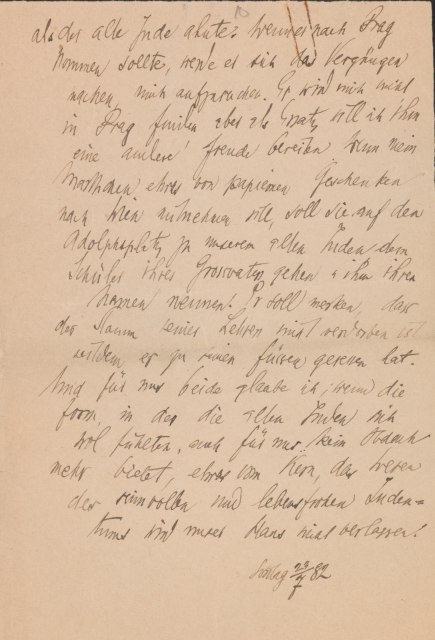 als der alte Jude ahnte: wenn er nach Prag
kommen sollte, werde er sich das Vergnügen
machen, mich aufzusuchen. Er wird mich nicht
in Prag finden aber als Ersatz will ich ihm
eine andere Freude bereiten. Wenn mein
Marthchen etwas von papiernen Geschenken
nach Wien mitnehmen will, soll sie auf den
Adolphsplatz zu unserem alten Juden dem
Schüler ihres Grossvaters gehen u ihm ihren
Namen nennen. Er soll merken, dass
der Stamm seines Lehrers nicht verdorben ist
seitdem er zu seinen Füssen gesessen hat.
Und für uns beide glaube ich: wenn die
Form in der die alten Juden sich
wol fühlten, auch für uns kein Obdach
mehr bietet, etwas vom Kern, das Wesen
des sinnvollen und lebensfrohen Juden=
tums wird unser Haus nicht verlassen.
23/7 82